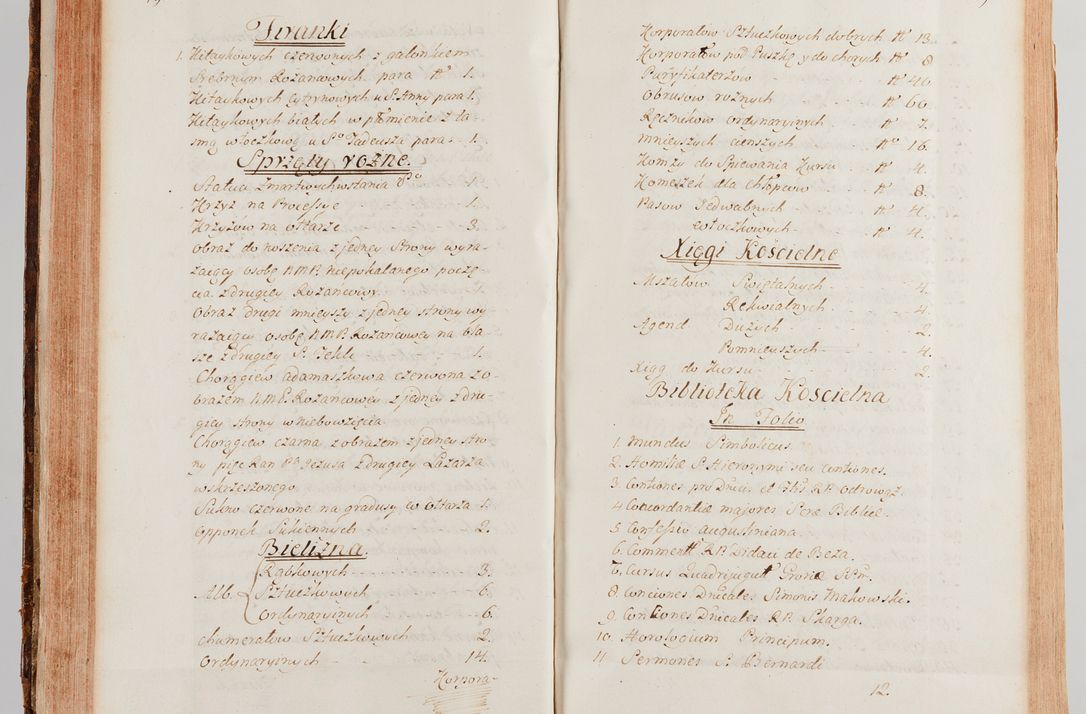 Firanki
1. Kitaykowych czerwonych z galonkiem
Srebrnym Rożancowych para N° 1.
Kitaykowych cytrynowych u S. Anny para 1.
Kitaykowych białych w płomienie z ta-
smą włoczkową u S° Tadeusza para - 1.
Sprzęty rożne.
Statua Zmartwychwstania P° 1.
Krzyż na Processye - 1.
Krzyżow na ołtarze - 3.
Obraz do noszenia z jedney strony wyra-
żaiący osobę NMP. niepokalanego poczę-
cia z drugiey Rożancowy.
Obraz drugi mnieyszy z jedney strony wy-
rażaiący osobę NMP. Rożańcowey na bla-
sze z drugiey S. Tekli 1.
Chorągiew adamaszkowa czerwona z o-
brazem NMP. Rożancowey z jedney z dru-
giey strony wniebowzięcia
Chorągiew czarna z obrazem z jedney stro-
ny pięc Ran Pa Jezusa z drugiey Lazarza
wskrzeszonego
Sukno czerwone na gradusy w ołtarza 1.
Opponek Sukiennych 2.
Bielizna.
Rąbkowych 3.
Alb. Sztuczkowych 6.
Ordynaryinych 6.
Chumerałow Sztuczkowych 2.
Ordynaryinych 14.
Korpora-
Korporałow Sztuczkowych dobrych N° 13.
Korporałow pod Puszkę y do chorych N° 8
Puryfikaterzow N° 40
Obrusow rożnych N° 60.
Ręcznikow ordynaryinych N° 7.
mnieyszych cienszych N° 16.
Komży do Spiewania Kursu N° 4.
Komeżek dla Chłopcow N° 8.
Pasow Jedwabnych N° 4.
włoczkowych N° 4.
Xięgi Kościelne
Mszałow Swiętalnych 4.
Rekwialnych 4.
Agend Dużych 2
Pomnieyszych 4.
Xiąg do Kursu 2.
Biblioteka Koscielna
In Folio
1. Mundus Simbolicus
2. Homiliæ S. Hieronymi seu Contiones.
3 Contiones pro Dnicis et Fstis RP. Odrowąż.
4 Concordantiæ majores Scræ Bibliæ.
5 Confessio augustiniana.
6. Comment RP. Didaci de Beza.
7. Cursus Quadrijugus
8. Conciones Dnicales Simonis Makowski.
9. Conciones Dnicales RP. Skarga.
10. Horologium Principum.
11 Sermones S. Bernardi
12.